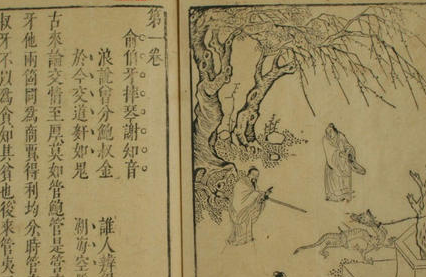 第　卷
俞伯牙摔琴謝知音
浪說曾分鮑叔金　誰人辨
於今交道奸如鬼　湖海空
古來論交情至厚莫如管鮑管是管
牙他兩箇同為商賈得利均分時管
叔牙不以為貪知其貧也後來管夷